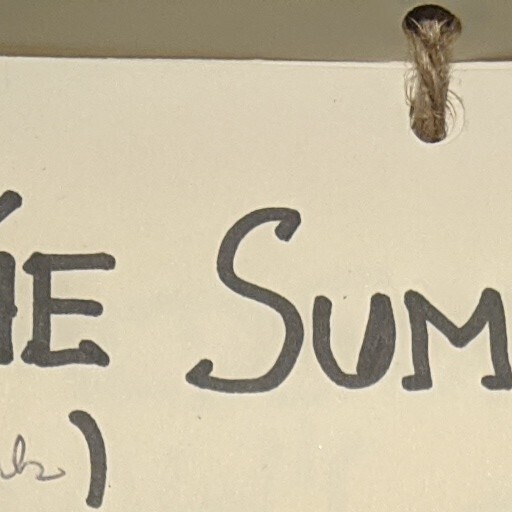 HE SUM
)